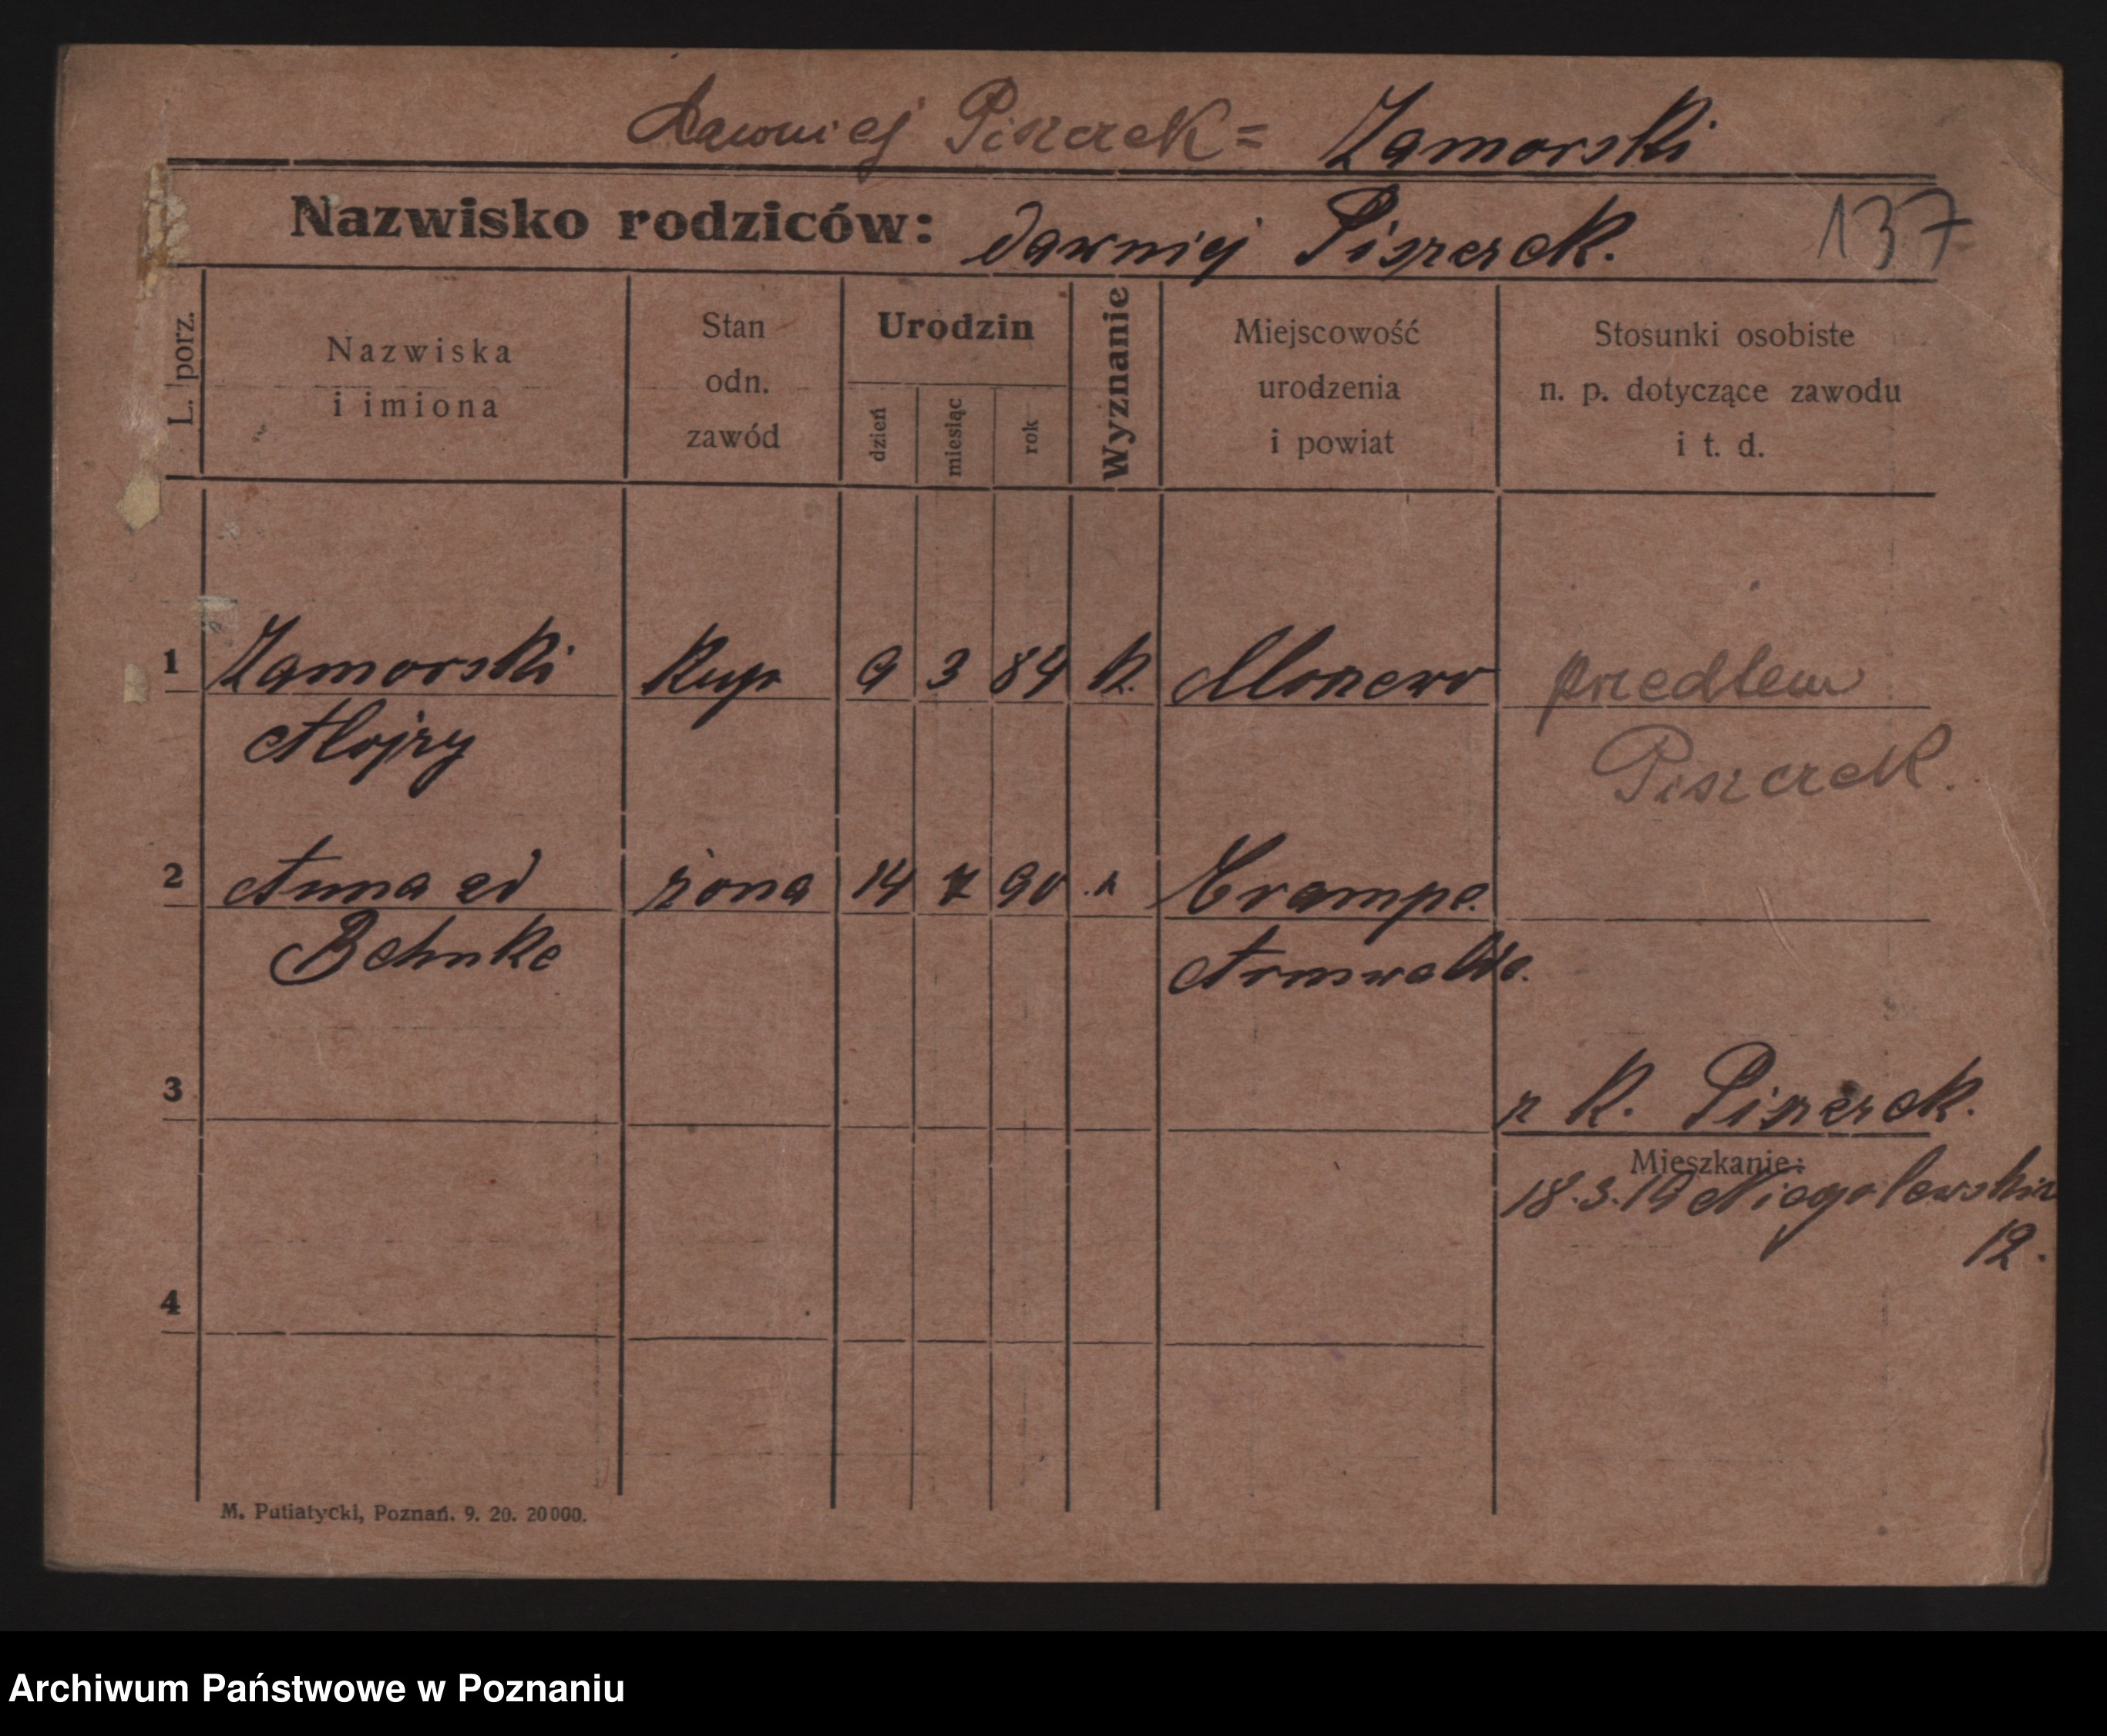 Dawniej Piszczek = Zamorski
Nazwisko rodziców: dawniej Piszczek.
137
L. porz.
Nazwiska
i imiona
Stan
odn.
zawód
Urodzin
dzień
miesiąc
rok
Wyznanie
Miejscowość
urodzenia
i powiat
Stosunki osobiste
n. p. dotyczące zawodu
i t. d.
1 Zamorski Kup 9 3 84 k. przedtem
Alojzy Piszczek.
2 Anna zd żona 14 7 90 Krampe.
Behnke Arnswalde.
3 z K. Piszczek.
Mieszkanie:
18.3.19 Niegolewskich
12.
4
M. Putiatycki, Poznań. 9. 20. 20000.
Archiwum Państwowe w Poznaniu